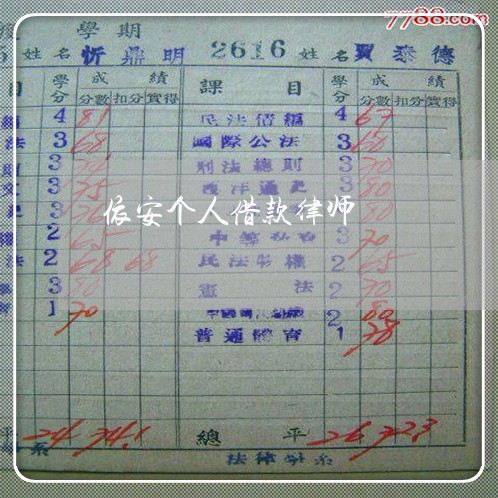 7788.com
學期
姓名 忻鼎明 2616 姓名 賈泰德
目 學分 成績 課目 學分 成績
分數 扣分 實得 分數 扣分 實得
4 81 民法債編 4 67
法 3 68 國際公法 3 60
3 刑法總則 3 70
3 75 西洋通史 3 80
3 3 80
2 65 3 70
法 2 68 68 民法物權 2 65
3 80 憲法 2 70
1 70 2 80
普通體育 1 78
依安个人借款律师
平 24 74.1 總平 26 72.3
系 法律學系